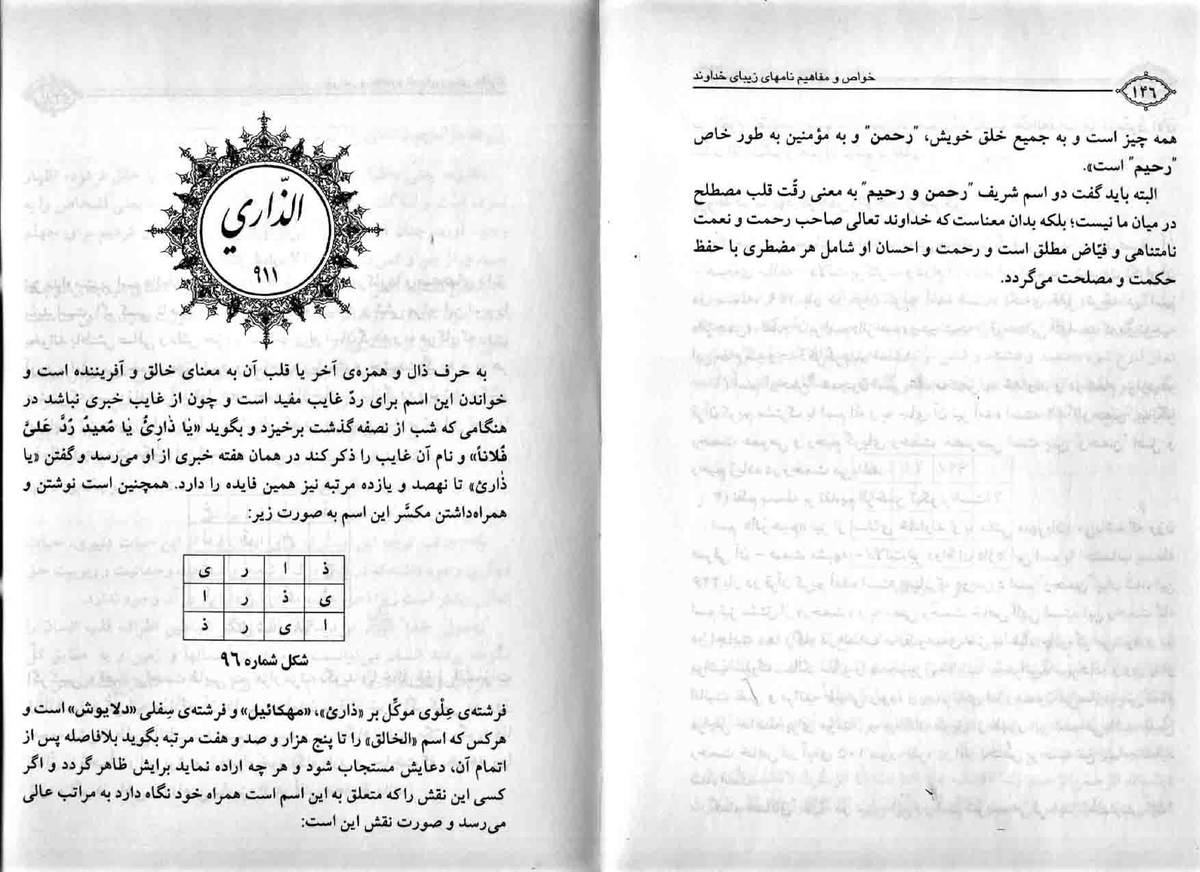 خواص و مفاهیم نامهای زیبای خداوند
۱۴۶
همه چیز است و به جمیع خلق خویش، "رحمن" و به مؤمنین به طور خاص
"رحیم" است».
البته باید گفت دو اسم شریف "رحمن و رحیم" به معنی رقّت قلب مصطلح
در میان ما نیست؛ بلکه بدان معناست که خداوند تعالی صاحب رحمت و نعمت
نامتناهی و فیّاض مطلق است و رحمت و احسان او شامل هر مضطری با حفظ
حکمت و مصلحت می‌گردد.
الذّاري
۹۱۱
به حرف ذال و همزه‌ی آخر یا قلب آن به معنای خالق و آفریننده است و
خواندن این اسم برای ردّ غایب مفید است و چون از غایب خبری نباشد در
هنگامی که شب از نصفه گذشت برخیزد و بگوید «یٰا ذٰارِئُ یٰا مُعیدُ رُدَّ عَلیَّ
فُلاناً» و نام آن غایب را ذکر کند در همان هفته خبری از او می‌رسد و گفتن «یا
ذٰارئ» تا نهصد و یازده مرتبه نیز همین فایده را دارد. همچنین است نوشتن و
همراه‌داشتن مکسَّر این اسم به صورت زیر:
ذ ا ر ی
ی ذ ر ا
ا ی ر ذ
شکل شماره ۹۶
فرشته‌ی عِلْوی موکَّل بر «ذارئ»، «مهکائیل» و فرشته‌ی سِفلی «دلایوش» است و
هرکس که اسم «الخالق» را تا پنج هزار و صد و هفت مرتبه بگوید بلافاصله پس از
اتمام آن، دعایش مستجاب شود و هر چه اراده نماید برایش ظاهر گردد و اگر
کسی این نقش را که متعلق به این اسم است همراه خود نگاه دارد به مراتب عالی
می‌رسد و صورت نقش این است: